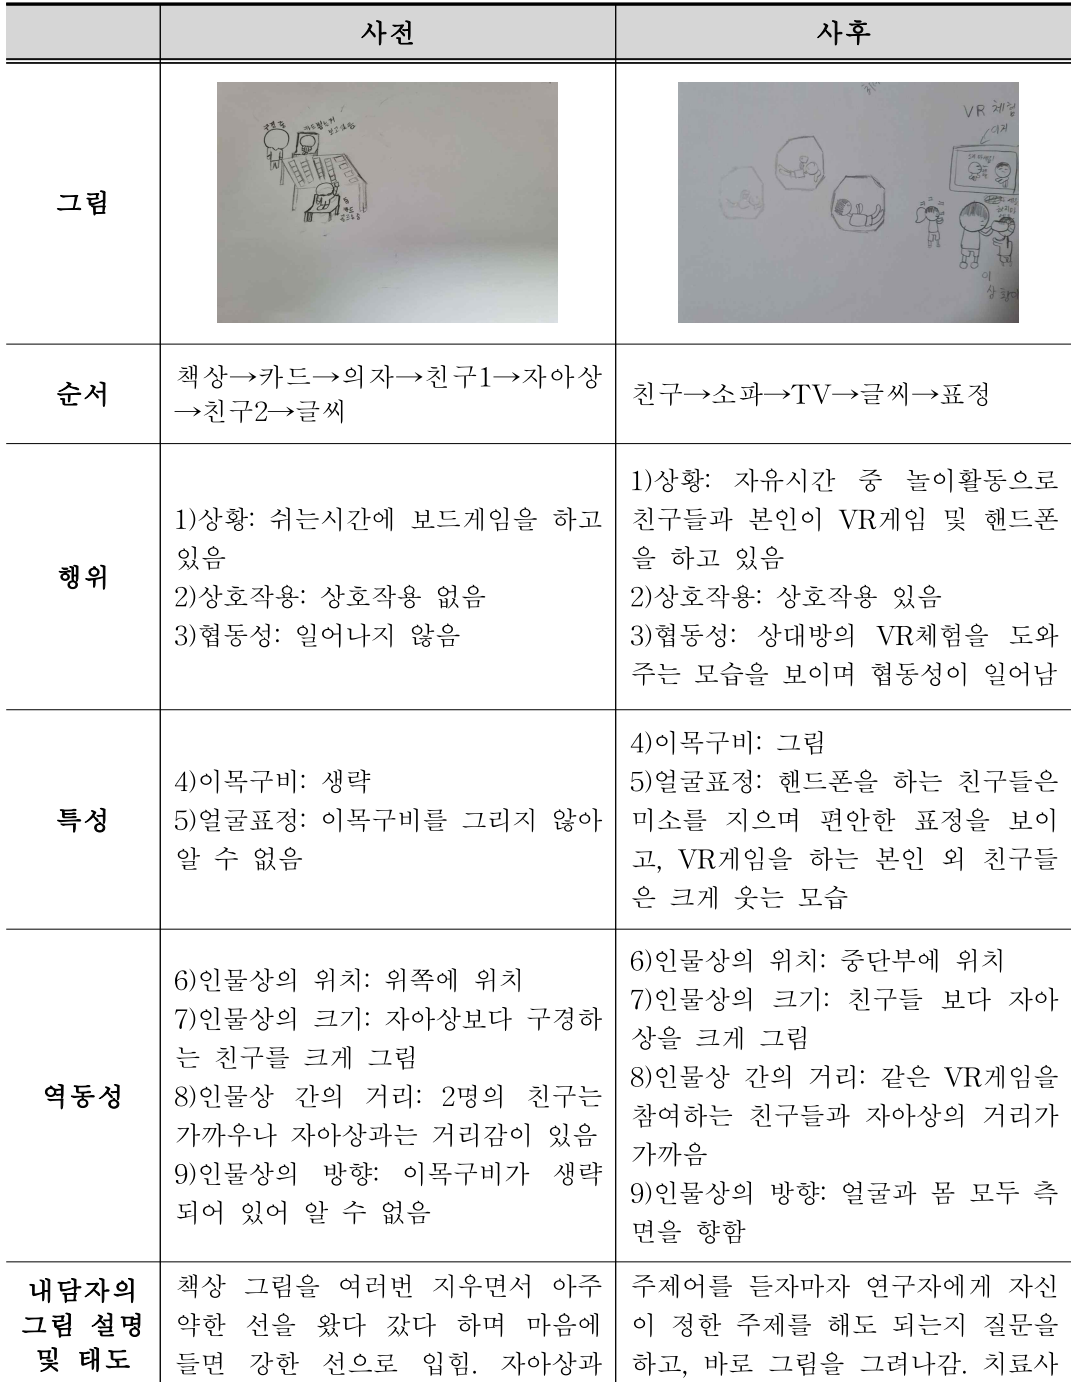 사전 사후
그림
VR 체험
순서
책상→카드→의자→친구1→자아상
→친구2→글씨
친구→소파→TV→글씨→표정
행위
1)상황: 쉬는시간에 보드게임을 하고
있음
2)상호작용: 상호작용 없음
3)협동성: 일어나지 않음
1)상황: 자유시간 중 놀이활동으로
친구들과 본인이 VR게임 및 핸드폰
을 하고 있음
2)상호작용: 상호작용 있음
3)협동성: 상대방의 VR체험을 도와
주는 모습을 보이며 협동성이 일어남
특성
4)이목구비: 생략
5)얼굴표정: 이목구비를 그리지 않아
알 수 없음
4)이목구비: 그림
5)얼굴표정: 핸드폰을 하는 친구들은
미소를 지으며 편안한 표정을 보이
고, VR게임을 하는 본인 외 친구들
은 크게 웃는 모습
역동성
6)인물상의 위치: 위쪽에 위치
7)인물상의 크기: 자아상보다 구경하
는 친구를 크게 그림
8)인물상 간의 거리: 2명의 친구는
가까우나 자아상과는 거리감이 있음
9)인물상의 방향: 이목구비가 생략
되어 있어 알 수 없음
6)인물상의 위치: 중단부에 위치
7)인물상의 크기: 친구들 보다 자아
상을 크게 그림
8)인물상 간의 거리: 같은 VR게임을
참여하는 친구들과 자아상의 거리가
가까음
9)인물상의 방향: 얼굴과 몸 모두 측
면을 향함
내담자의
그림 설명
및 태도
책상 그림을 여러번 지우면서 아주
약한 선을 왔다 갔다 하며 마음에
들면 강한 선으로 입힘. 자아상과
주제어를 듣자마자 연구자에게 자신
이 정한 주제를 해도 되는지 질문을
하고, 바로 그림을 그려나감. 치료사